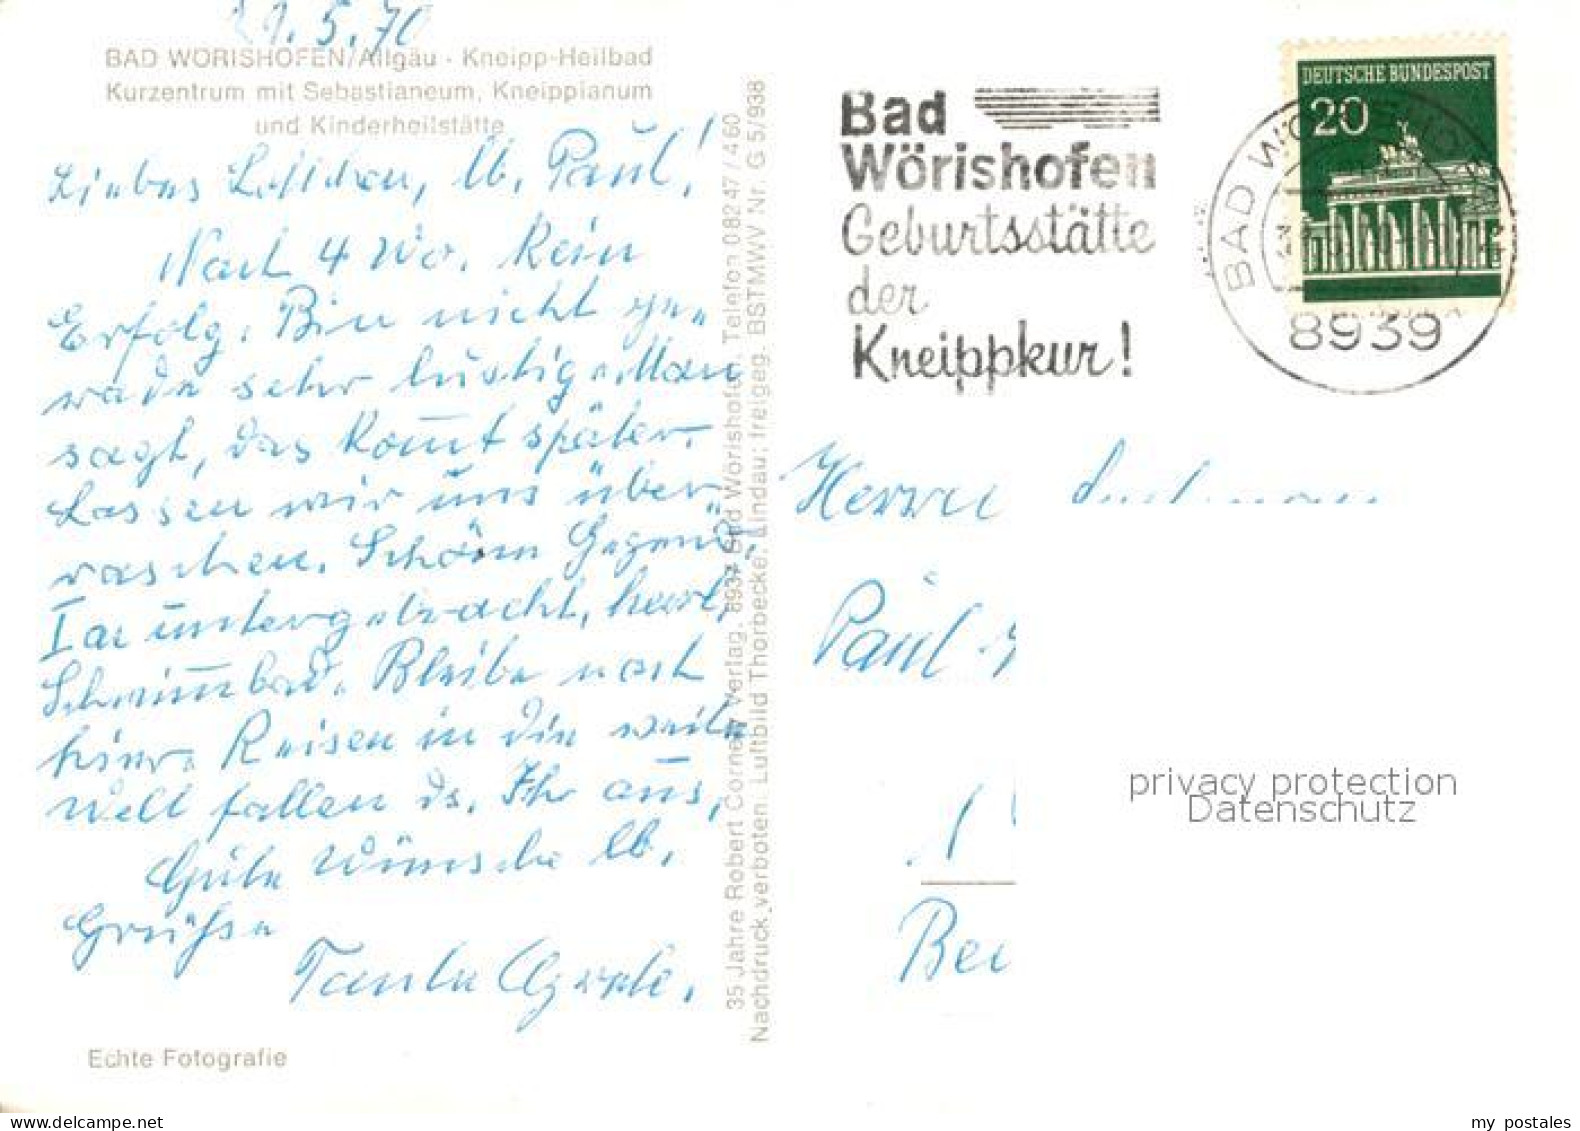 21.5.70
BAD WÖRISHOFEN/Allgäu · Kneipp-Heilbad
Kurzentrum mit Sebastianeum, Kneippianum
und Kinderheilstätte
Liebes Lottchen, lb. Paul!
Nach 4 Wo. kein
Erfolg. Bin nicht ge-
rade sehr lustig. Man
sagt, das kommt später.
Lassen wir uns über
raschen. Schöne Gegend,
Ia untergebracht, herrl.
Schwimmbad. Bleibe noch
hier. Reisen in die weite
Welt fallen ds. Jhr aus,
Gute Wünsche lb.
Grüsse
Tante
Echte Fotografie
35 Jahre Robert Corneli Verlag, 8939 Bad Wörishofen, Telefon 08247/460
Nachdruck verboten. Luftbild Thorbecke, Lindau; freigeg. BSTMWV Nr. G 5/938
Bad
Wörishofen
Geburtsstätte
der
Kneippkur!
DEUTSCHE BUNDESPOST
20
BAD
8939
Herrn
Paul
privacy protection
Datenschutz
my postales